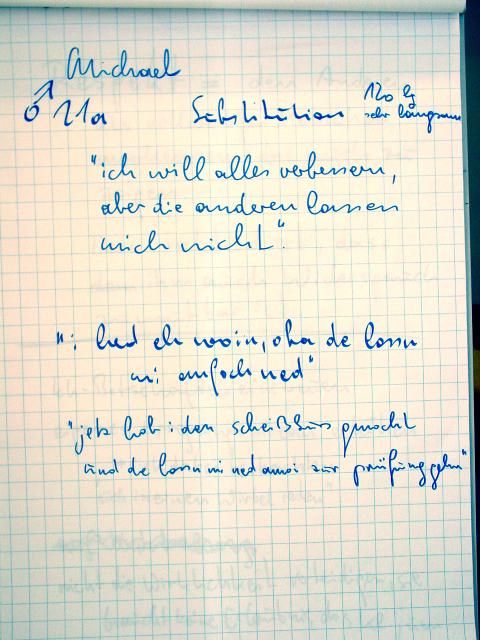 Michael
♂ 21a Substitution 120 kg
sehr langsam
"ich will alles verbessern,
aber die anderen lassen
mich nicht".
"i hed eh woin, oba de lossn
mi anfoch ned"
"jetz hob i den scheißkurs gmocht
und de lossn mi ned amoi zur prüfung gehn"